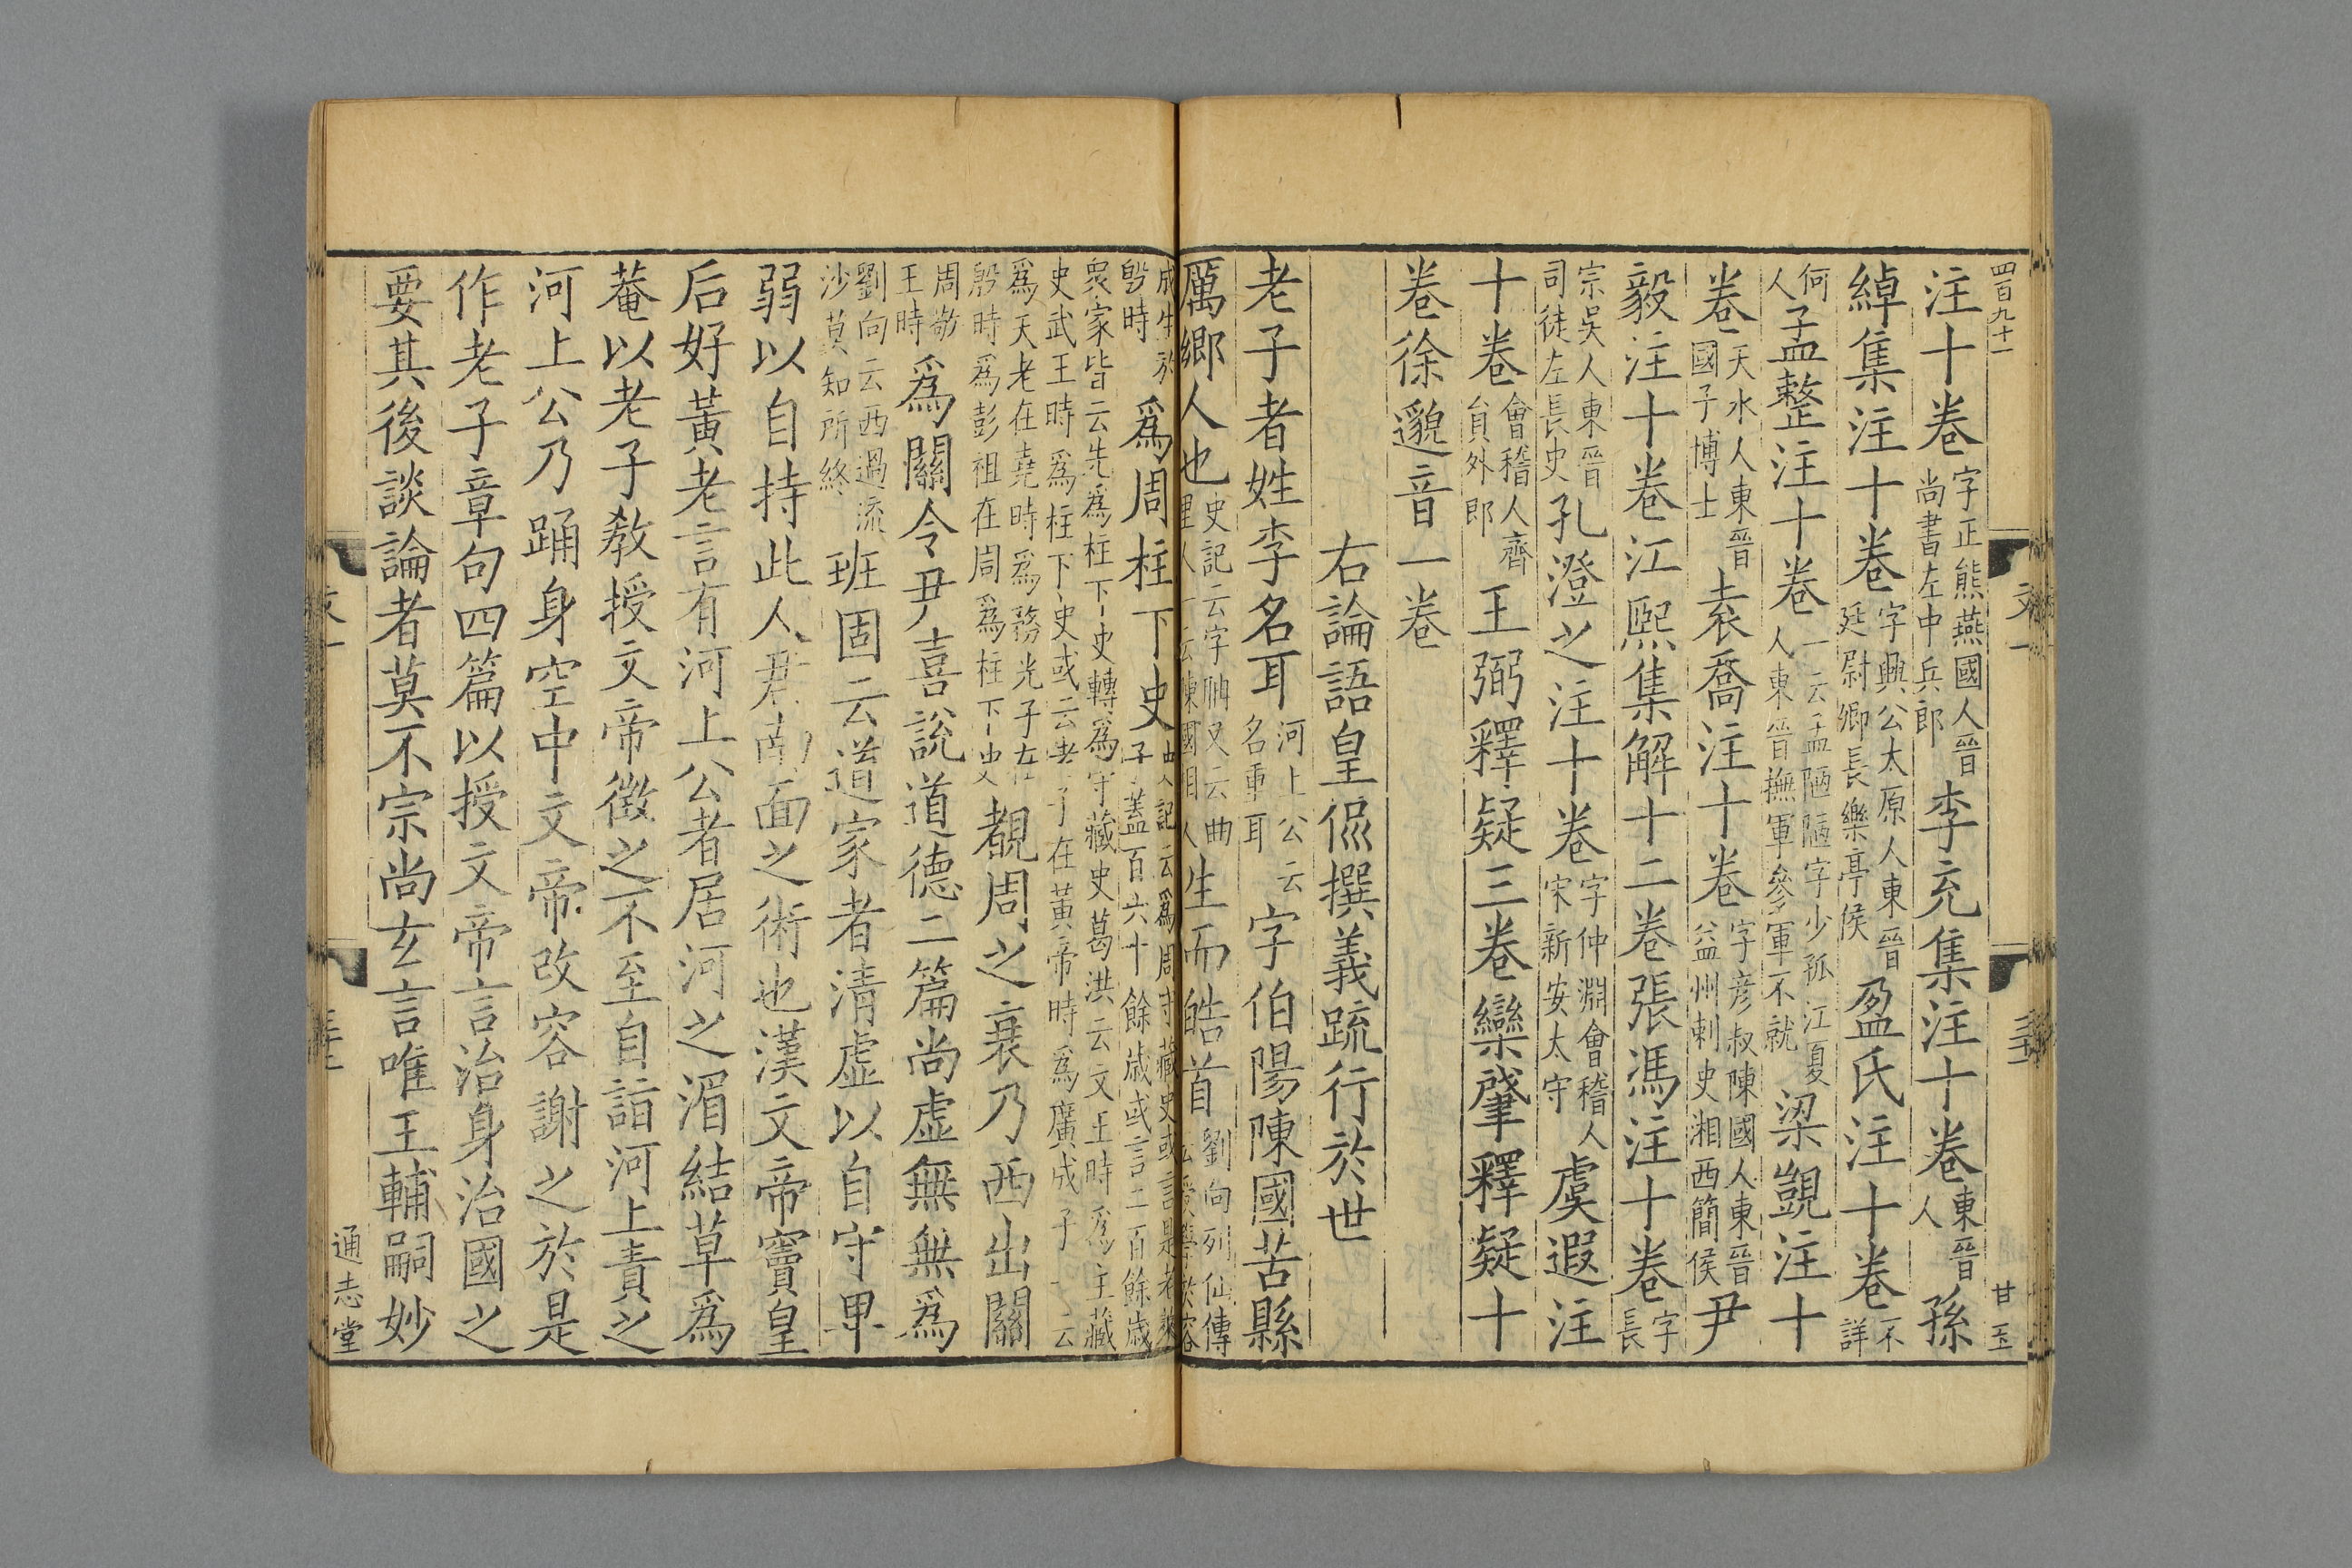 四百九十一 文一 三十一 甘玉
注十卷 字正熊燕國人晉尚書左中兵郎 李充集注十卷 東晉人 孫
綽集注十卷 字興公太原人東晉廷尉卿長樂亭侯 盈氏注十卷 不詳
何人 孟整注十卷 一云孟陋陋字少孤江夏人東晉撫軍參軍不就 梁覬注十
卷 天水人東晉國子博士 袁喬注十卷 字彥叔陳國人東晉益州刺史湘西簡侯 尹
毅注十卷江熙集解十二卷張馮注十卷 字長
宗吳人東晉司徒左長史 孔澄之注十卷 字仲淵會稽人宋新安太守 虞遐注
十卷 會稽人齊員外郎 王弼釋疑三卷欒肇釋疑十
卷徐邈音一卷
右論語皇侃撰義疏行於世
老子者姓李名耳 河上公云名重耳 字伯陽陳國苦縣
厲鄉人也 史記云字聃又云曲里人一云陳國相人 生而皓首 劉向列仙傳云受學於容
成生於殷時 爲周柱下史 史記云爲周守藏史或言是老萊子蓋百六十餘歲或言二百餘歲
衆家皆云先爲柱下史轉爲守藏史葛洪云文王時爲主藏
史武王時爲柱下史或云老子在黃帝時爲廣成子一云
爲天老在堯時爲務光子在殷時爲彭祖在周爲柱下史 覩周之衰乃西出關
周敬王時 爲關令尹喜說道德二篇尚虛無無爲
劉向云西過流沙莫知所終 班固云道家者清虛以自守卑
弱以自持此人君南面之術也漢文帝竇皇
后好黃老言有河上公者居河之湄結草爲
菴以老子敎授文帝徵之不至自詣河上責之
河上公乃踊身空中文帝改容謝之於是
作老子章句四篇以授文帝言治身治國之
要其後談論者莫不宗尚玄言唯王輔嗣妙
文一 通志堂